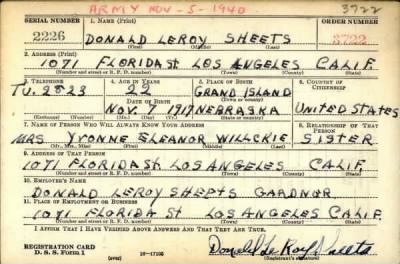 ARMY NOV - 5 - 1940
3722
SERIAL NUMBER 1. NAME (Print) ORDER NUMBER
2226 DONALD LEROY SHEETS 3722
(First) (Middle) (Last)
2. ADDRESS (Print)
1071 FLORIDA St. LOS ANGELES CALIF.
(Number and street or R. F. D. number) (Town) (County) (State)
3. TELEPHONE 4. AGE IN YEARS 5. PLACE OF BIRTH 6. COUNTRY OF CITIZENSHIP
TU. 2823 22 GRAND ISLAND
DATE OF BIRTH
NOV. 7 1917 NEBRASKA UNITED STATES
7. NAME OF PERSON WHO WILL ALWAYS KNOW YOUR ADDRESS 8. RELATIONSHIP OF THAT PERSON
MRS YVONNE ELEANOR WILLCKIE SISTER
(Mr., Mrs., Miss) (First) (Middle) (Last)
9. ADDRESS OF THAT PERSON
1071 FLORIDA St. LOS ANGELES CALIF.
(Number and street or R. F. D. number) (Town) (County) (State)
10. EMPLOYER'S NAME
DONALD LEROY SHEETS GARDNER
11. PLACE OF EMPLOYMENT OR BUSINESS
1071 FLORIDA St LOS ANGELES CALIF.
(Number and street or R. F. D. number) (Town) (County) (State)
I AFFIRM THAT I HAVE VERIFIED ABOVE ANSWERS AND THAT THEY ARE TRUE.
REGISTRATION CARD
D. S. S. Form 1 16-17105 Donald Le Roy Sheets
(Registrant's signature)